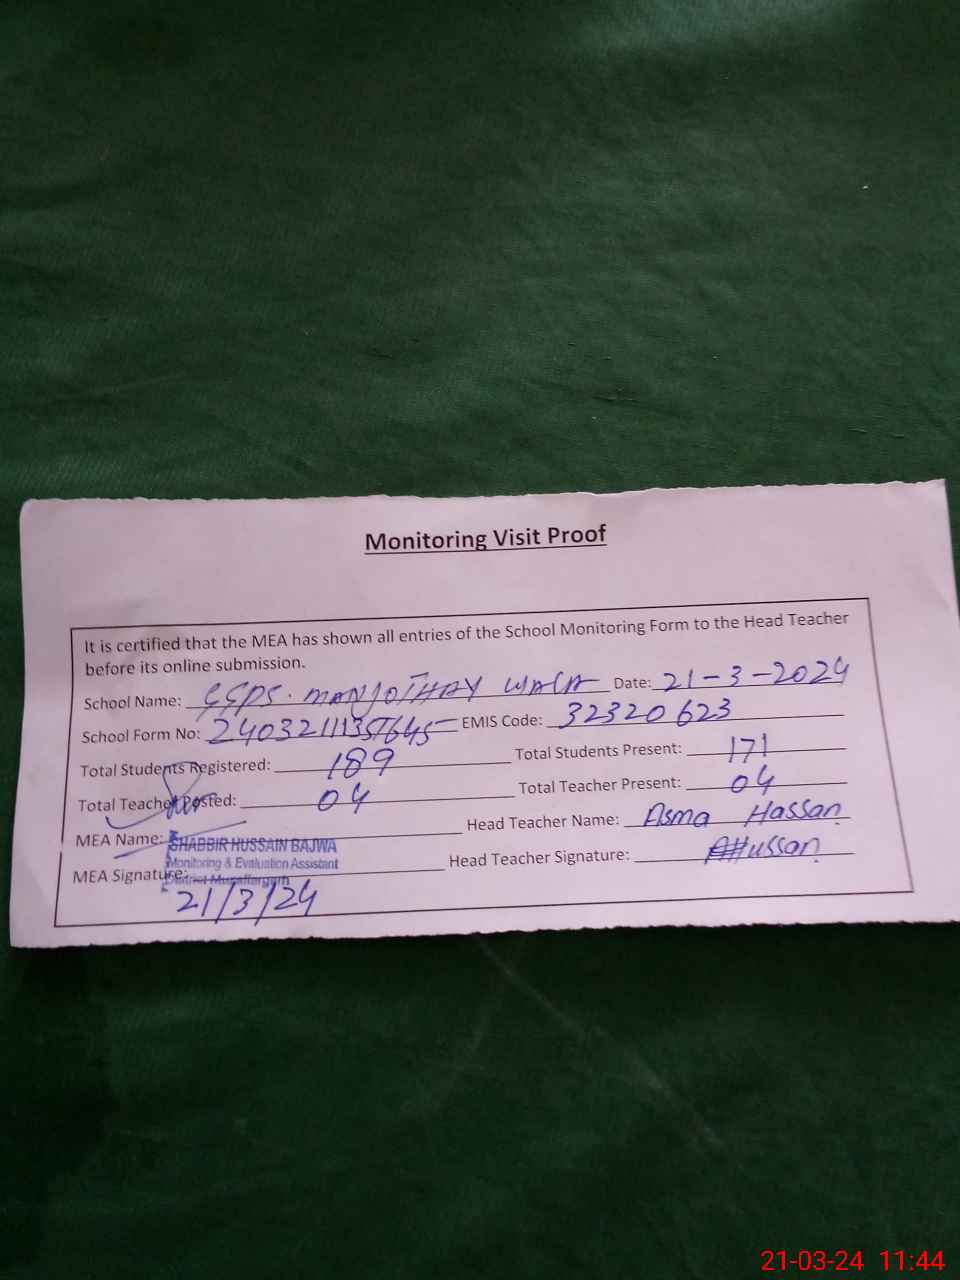 Monitoring Visit Proof
It is certified that the MEA has shown all entries of the School Monitoring Form to the Head Teacher
before its online submission.
School Name: GGPS. MANJOTHAY WALA Date: 21-3-2024
School Form No: EMIS Code: 32320623
Total Students Registered: 189 Total Students Present: 171
Total Teacher Posted: 04 Total Teacher Present: 04
MEA Name: SHABBIR HUSSAIN BAJWA Head Teacher Name: Asma Hassan
Monitoring & Evaluation Assistant
MEA Signature: District Muzaffargarh Head Teacher Signature: AHussan
21/3/24
21-03-24 11:44